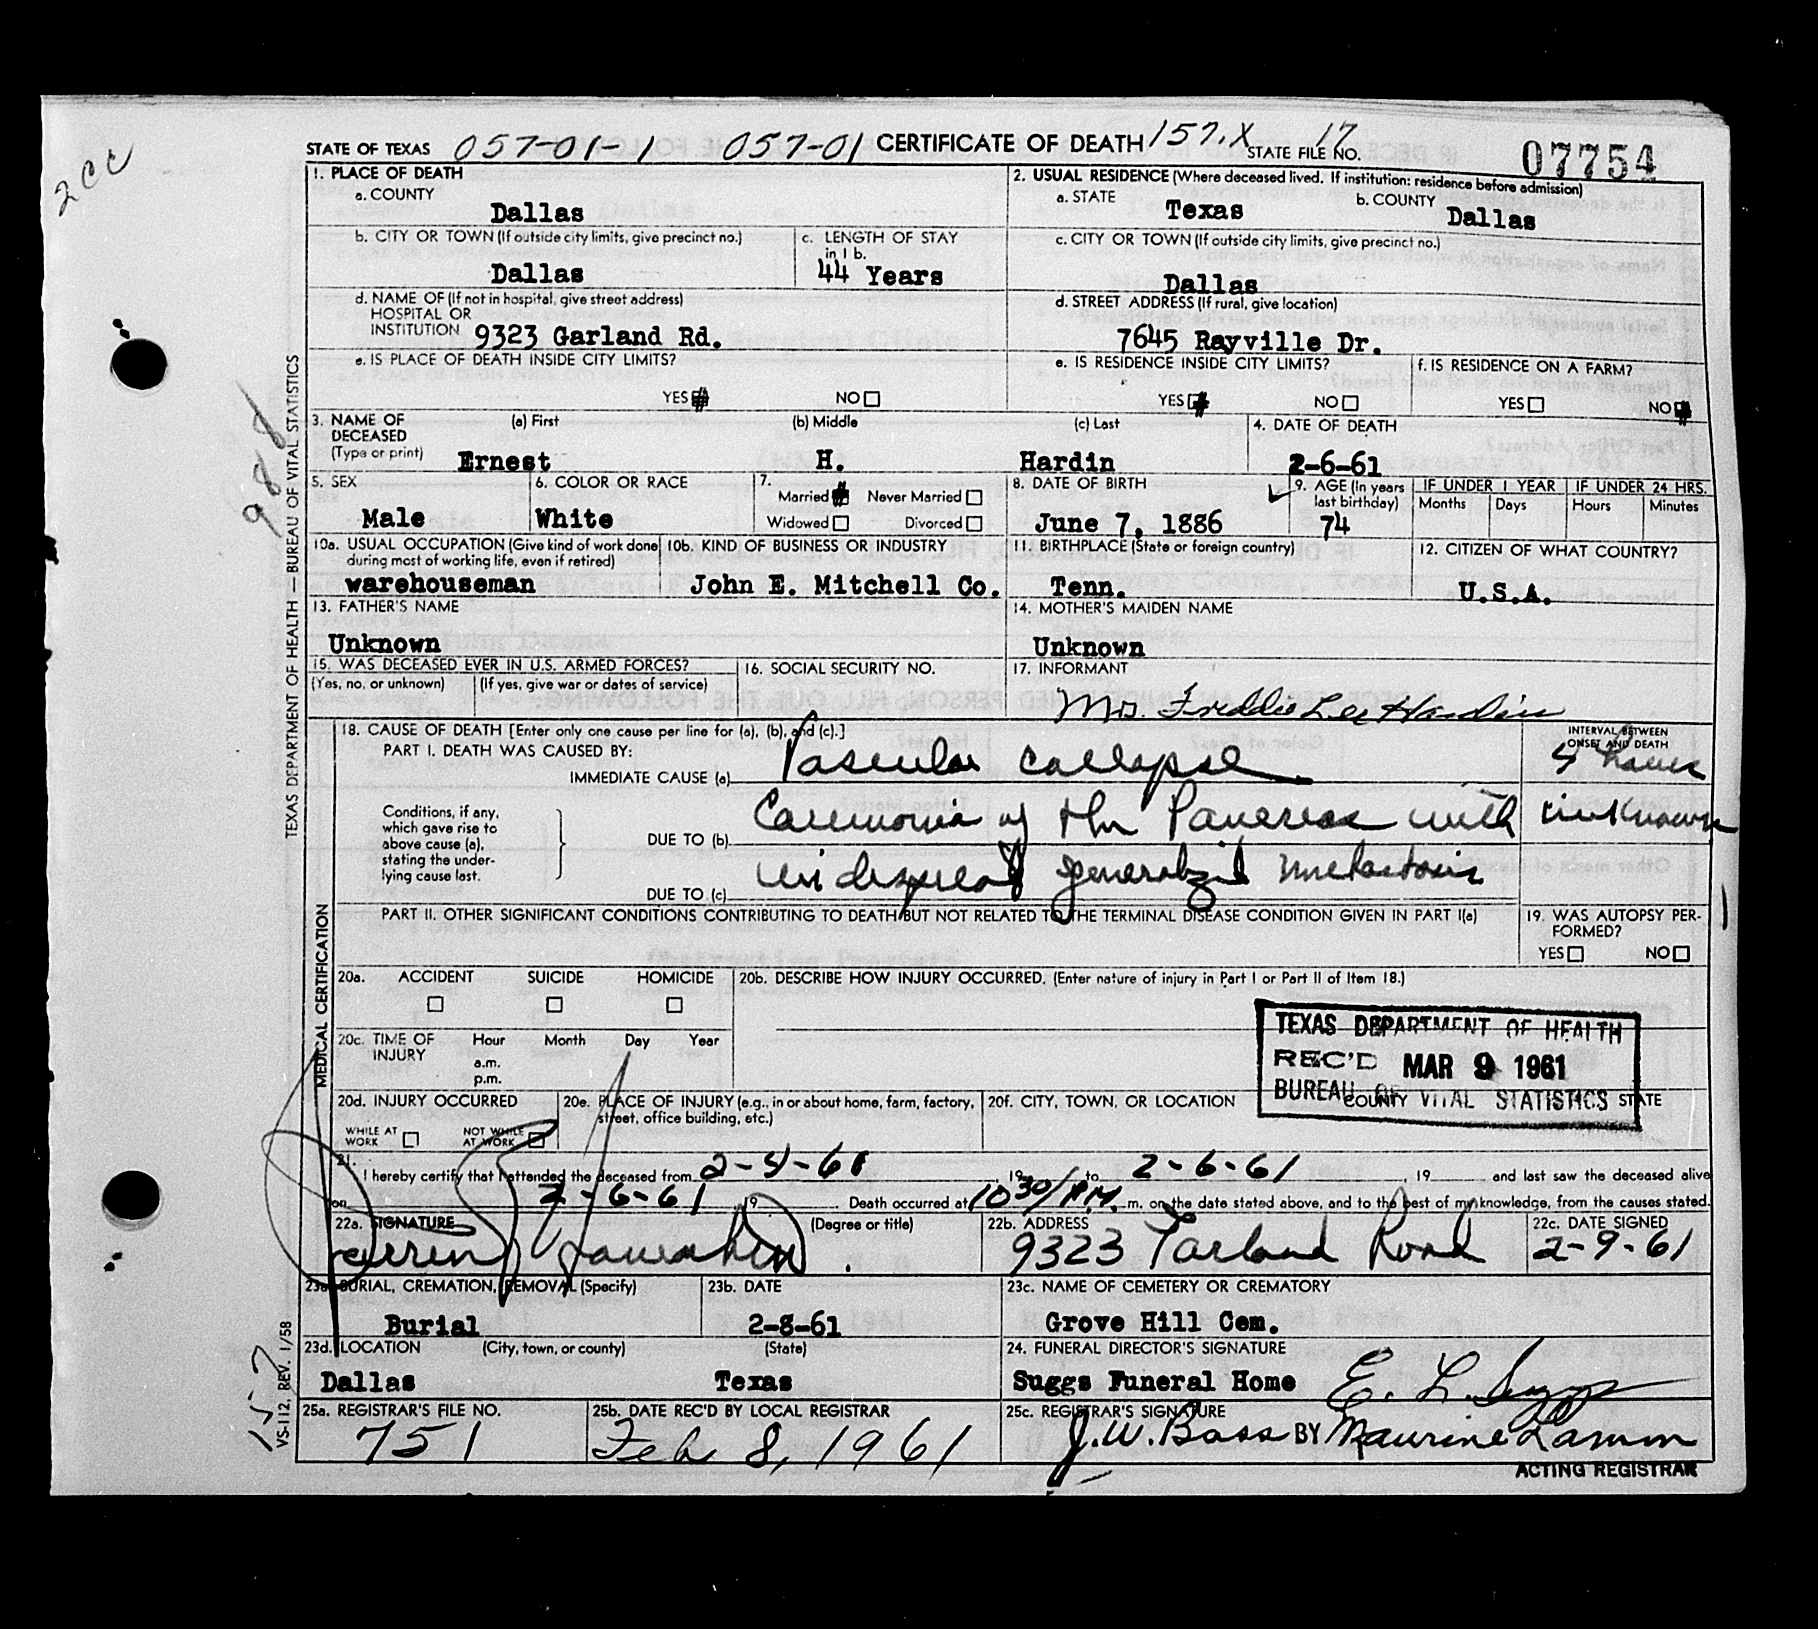 2CC
STATE OF TEXAS 057-01-1 057-01 CERTIFICATE OF DEATH 157.X STATE FILE NO. 17 07754
1. PLACE OF DEATH
a. COUNTY
Dallas
2. USUAL RESIDENCE (Where deceased lived. If institution: residence before admission)
a. STATE
Texas
b. COUNTY
Dallas
b. CITY OR TOWN (If outside city limits, give precinct no.)
Dallas
c. LENGTH OF STAY
in 1 b.
44 Years
c. CITY OR TOWN (If outside city limits, give precinct no.)
Dallas
d. NAME OF (If not in hospital, give street address)
HOSPITAL OR
INSTITUTION 9323 Garland Rd.
d. STREET ADDRESS (If rural, give location)
7645 Rayville Dr.
e. IS PLACE OF DEATH INSIDE CITY LIMITS?
YES NO
e. IS RESIDENCE INSIDE CITY LIMITS?
YES NO
f. IS RESIDENCE ON A FARM?
YES NO
3. NAME OF
DECEASED
(Type or print)
(a) First
Ernest
(b) Middle
H.
(c) Last
Hardin
4. DATE OF DEATH
2-6-61
5. SEX
Male
6. COLOR OR RACE
White
7.
Married Never Married
Widowed Divorced
8. DATE OF BIRTH
June 7, 1886
9. AGE (In years
last birthday)
74
IF UNDER 1 YEAR
Months Days
IF UNDER 24 HRS.
Hours Minutes
10a. USUAL OCCUPATION (Give kind of work done
during most of working life, even if retired)
warehouseman
10b. KIND OF BUSINESS OR INDUSTRY
John E. Mitchell Co.
11. BIRTHPLACE (State or foreign country)
Tenn.
12. CITIZEN OF WHAT COUNTRY?
U.S.A.
13. FATHER'S NAME
Unknown
14. MOTHER'S MAIDEN NAME
Unknown
15. WAS DECEASED EVER IN U.S. ARMED FORCES?
(Yes, no, or unknown) (If yes, give war or dates of service)
16. SOCIAL SECURITY NO.
17. INFORMANT
Mrs. Freddie Lee Hardin
18. CAUSE OF DEATH [Enter only one cause per line for (a), (b), and (c).]
PART I. DEATH WAS CAUSED BY:
IMMEDIATE CAUSE (a) Vascular collapse
INTERVAL BETWEEN
ONSET AND DEATH
4 hours
Conditions, if any,
which gave rise to
above cause (a),
stating the under-
lying cause last.
DUE TO (b) Carcinoma of the Pancreas with unknown
DUE TO (c) widespread generalized metastasis
PART II. OTHER SIGNIFICANT CONDITIONS CONTRIBUTING TO DEATH BUT NOT RELATED TO THE TERMINAL DISEASE CONDITION GIVEN IN PART I(a)
19. WAS AUTOPSY PER-
FORMED?
YES NO
20a. ACCIDENT SUICIDE HOMICIDE
20b. DESCRIBE HOW INJURY OCCURRED. (Enter nature of injury in Part I or Part II of Item 18.)
20c. TIME OF
INJURY
Hour Month Day Year
a.m.
p.m.
TEXAS DEPARTMENT OF HEALTH
REC'D MAR 9 1961
BUREAU OF VITAL STATISTICS
20d. INJURY OCCURRED
WHILE AT
WORK
NOT WHILE
AT WORK
20e. PLACE OF INJURY (e.g., in or about home, farm, factory,
street, office building, etc.)
20f. CITY, TOWN, OR LOCATION COUNTY STATE
21.
I hereby certify that I attended the deceased from 2-4-61, 19 to 2-6-61, 19 and last saw the deceased alive
on 2-6-61 19. Death occurred at 10 30/P.M. m. on the date stated above, and to the best of my knowledge, from the causes stated.
22a. SIGNATURE
(Degree or title)
22b. ADDRESS
9323 Garland Road
22c. DATE SIGNED
2-9-61
23a. BURIAL, CREMATION, REMOVAL (Specify)
Burial
23b. DATE
2-8-61
23c. NAME OF CEMETERY OR CREMATORY
Grove Hill Cem.
23d. LOCATION (City, town, or county) (State)
Dallas Texas
24. FUNERAL DIRECTOR'S SIGNATURE
Suggs Funeral Home E. L. Suggs
25a. REGISTRAR'S FILE NO.
751
25b. DATE REC'D BY LOCAL REGISTRAR
Feb 8, 1961
25c. REGISTRAR'S SIGNATURE
J.W. Bass BY Maurine Lamm
ACTING REGISTRAR
TEXAS DEPARTMENT OF HEALTH — BUREAU OF VITAL STATISTICS
988
MEDICAL CERTIFICATION
VS-112, REV. 1/58
157